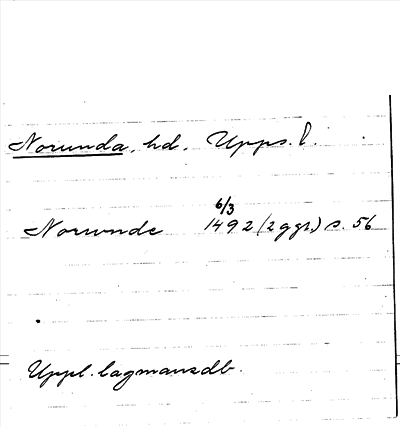 Norunda, hd. Upps. l.
6/3
Norunde 1492 (2 ggr) s. 56
Uppl. lagmansdb.